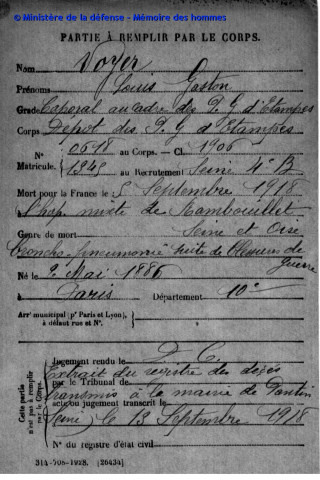 © Ministère de la défense - Mémoire des hommes
PARTIE À REMPLIR PAR LE CORPS.
Nom Voyer
Prénoms Louis Gaston
Grade Caporal au cadre des P. G d'Etampes
Corps Dépôt des P. G d'Etampes
N° 0618 au Corps. — Cl. 1906
Matricule. 1345 au Recrutement Seine 4e B
Mort pour la France le 5 Septembre 1918
à l'hôp. mixte de Rambouillet
Seine et Oise
Genre de mort
Broncho-pneumonie suite de Blessures de guerre
Né le 2 Mai 1886
à Paris Département 10e
Arrt municipal (pr Paris et Lyon), à défaut rue et N°.
Cette partie n'est pas à remplir par le Corps.
Jugement rendu le D. C.
Extrait du registre des décès
par le Tribunal de
transmis à la mairie de Pantin
acte ou jugement transcrit le
Seine, le 13 Septembre 1918
N° du registre d'état civil
314-708-1928. [26434]